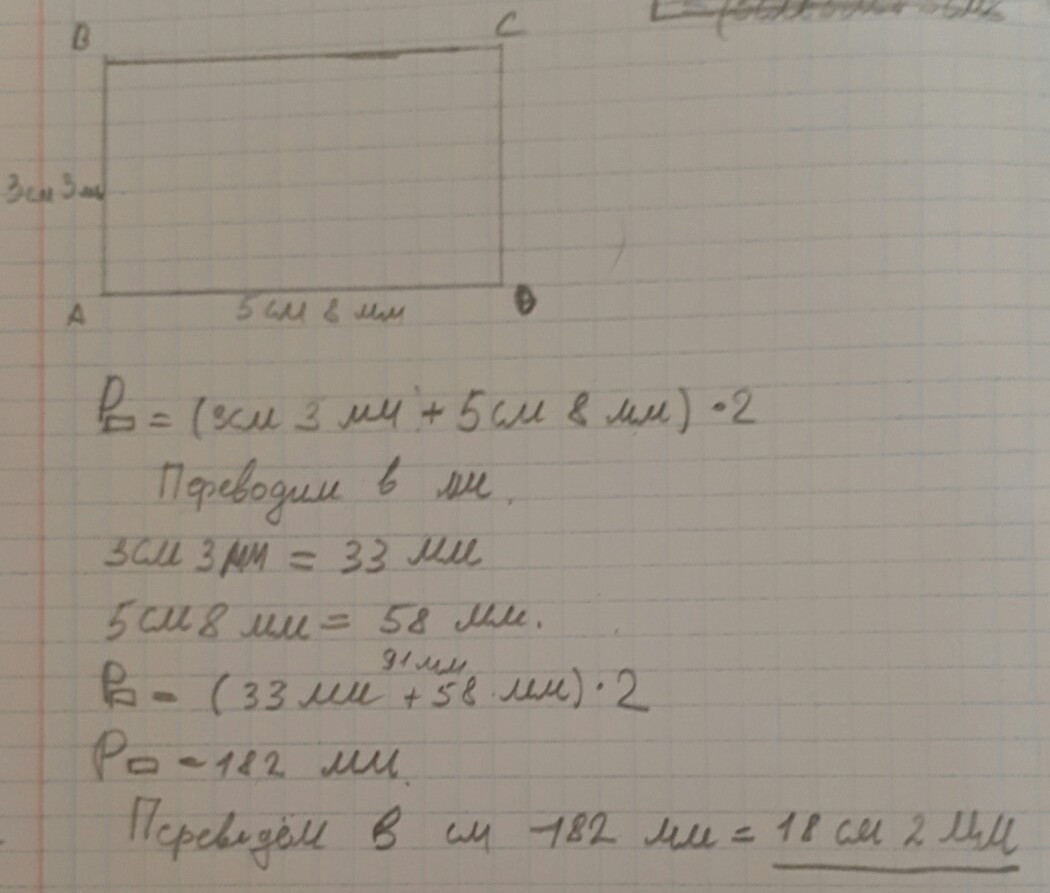 B
C
3см 3м
A
D
5 см 8 мм
P▭ = (3см 3 мм + 5см 8 мм) · 2
Переводим в мм.
3см 3мм = 33 мм
5см 8 мм = 58 мм.
91 мм
P▭ = (33 мм + 58 мм) · 2
P▭ = 182 мм.
Переведём в см 182 мм = 18 см 2 мм